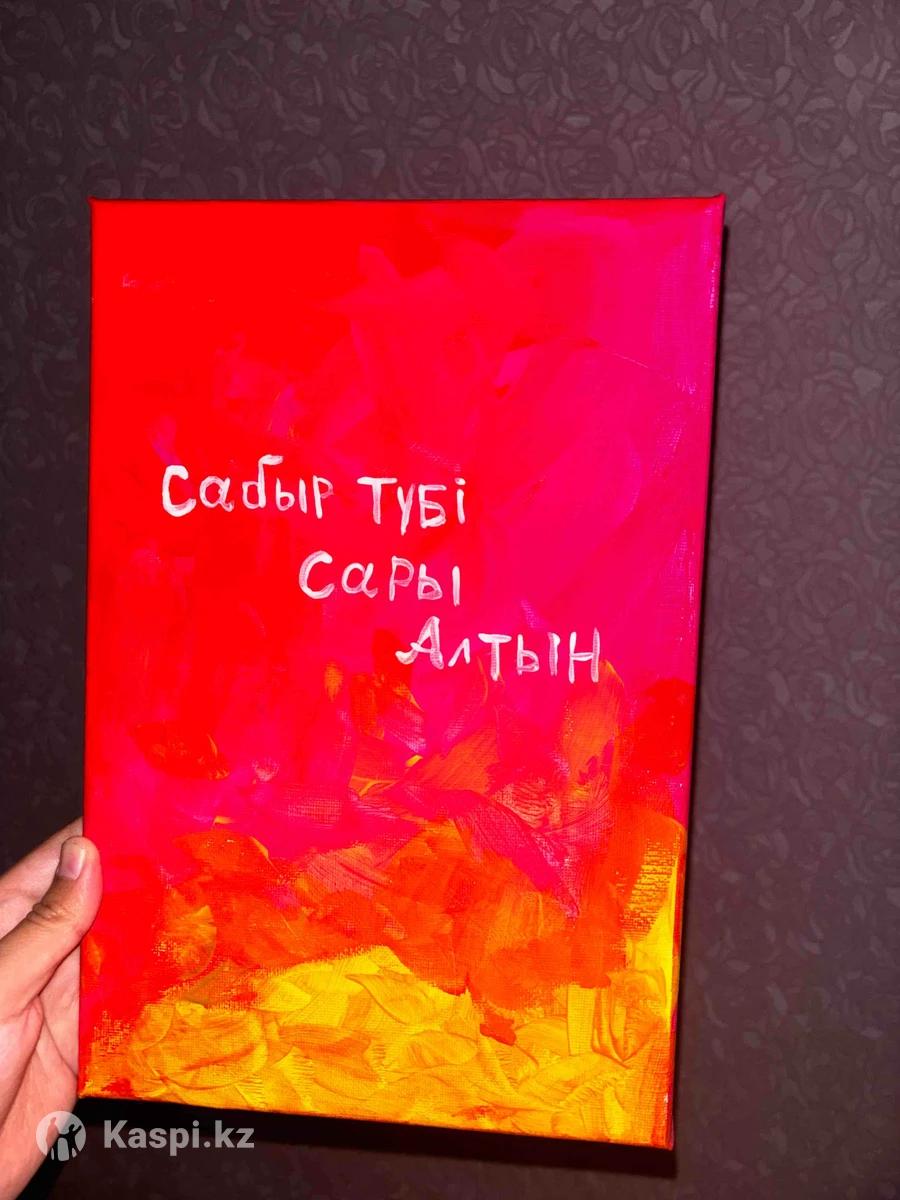 Сабыр түбі
Сары
Алтын
Kaspi.kz